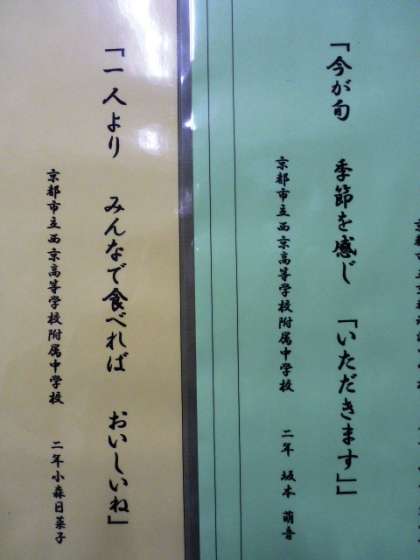 「今が旬　季節を感じ　「いただきます」」
京都市立西京高等学校附属中学校　二年　坂本　萌音
「一人より　みんなで食べれば　おいしいね」
京都市立西京高等学校附属中学校　二年小森日菜子